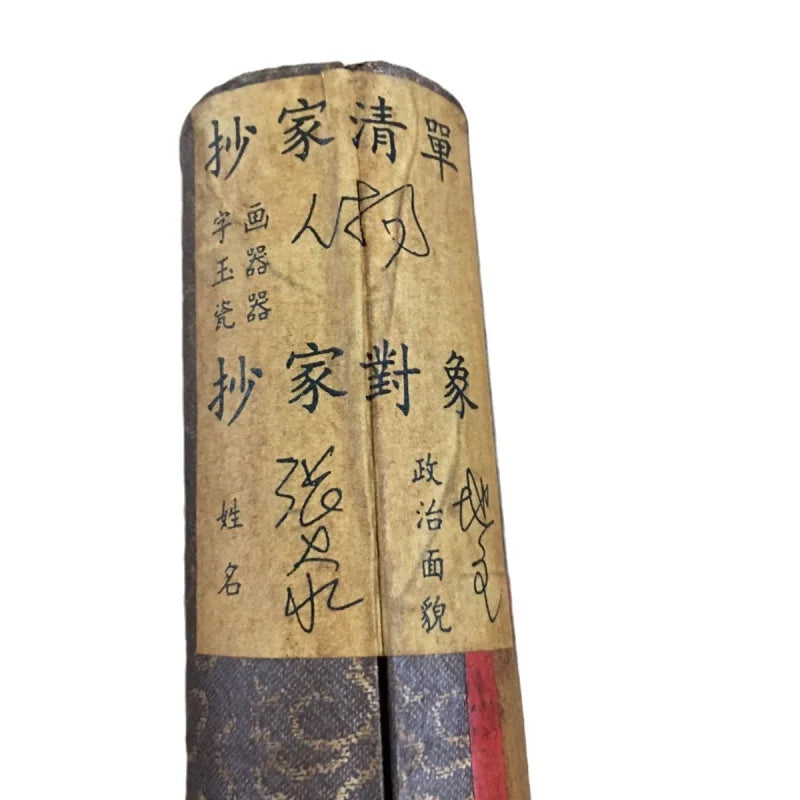 抄家清單
字画
玉器
瓷器
人物
抄家對象
姓名
张大水
政治面貌
地主